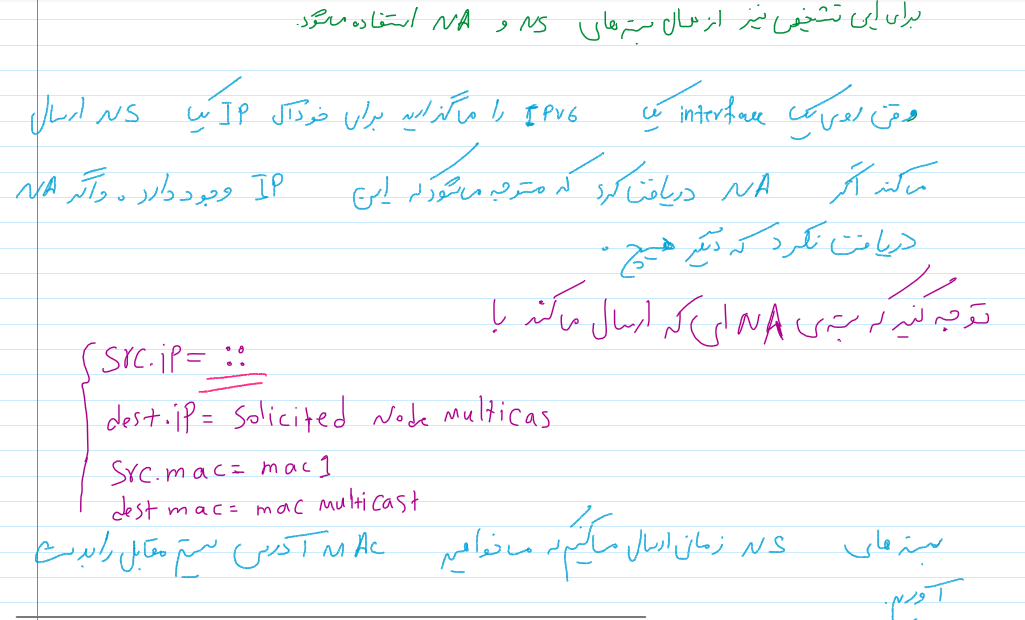 برای این تشخیص نیز از ارسال بسته های NS و NA استفاده میشود.
وقتی روی یک interface یک IPv6 را میگذارید برای خود آن IP یک NS ارسال
میکند اگر NA دریافت کرد که متوجه میشود که این IP وجود دارد. و اگر NA
دریافت نکرد که دیگر هیچ.
توجه کنید که بسته ی NA ای که ارسال میکند با
src.ip= ::
dest.ip= Solicited Node multicas
Src.mac= mac1
dest mac= mac multicast
بسته های NS زمانی ارسال میکنیم که میخواهیم MAC آدرس سیستم مقابل را بدست
آوریم.